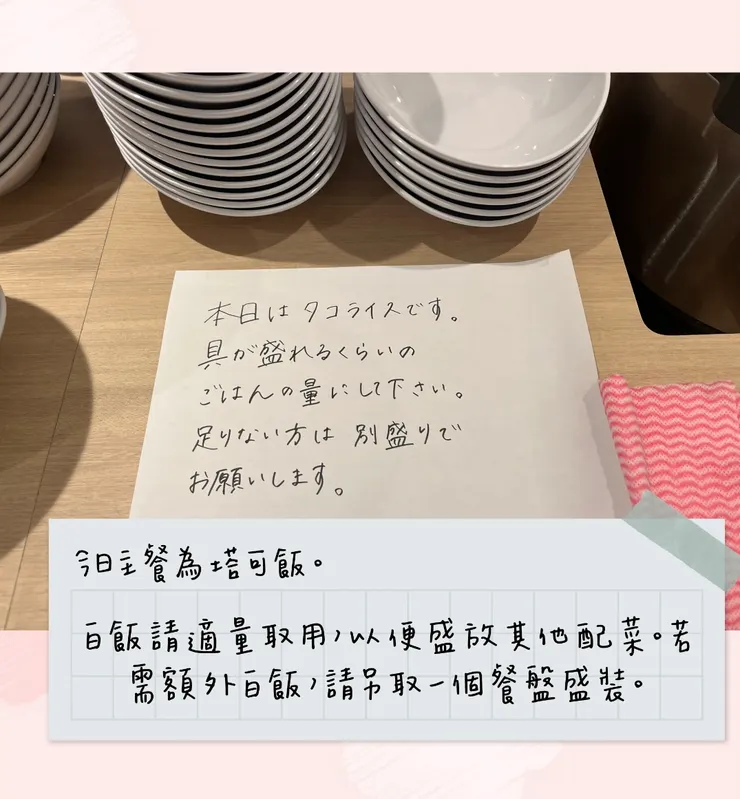 本日は タコライスです。
具が盛れるくらいの
ごはんの量にして下さい。
足りない方は 別盛りで
お願いします。
今日主餐為塔可飯。
白飯請適量取用,以便盛放其他配菜。若
需額外白飯,請另取一個餐盤盛裝。